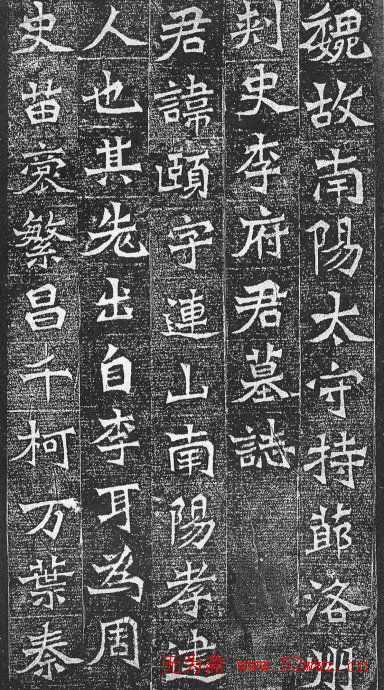 魏故南陽太守持莭洛州
刾史李府君墓誌
君諱頤字連山南陽孝建
人也其先出自李耳為周
史苗裔繁昌千柯万葉秦
无为斋 www.52wwz.cn